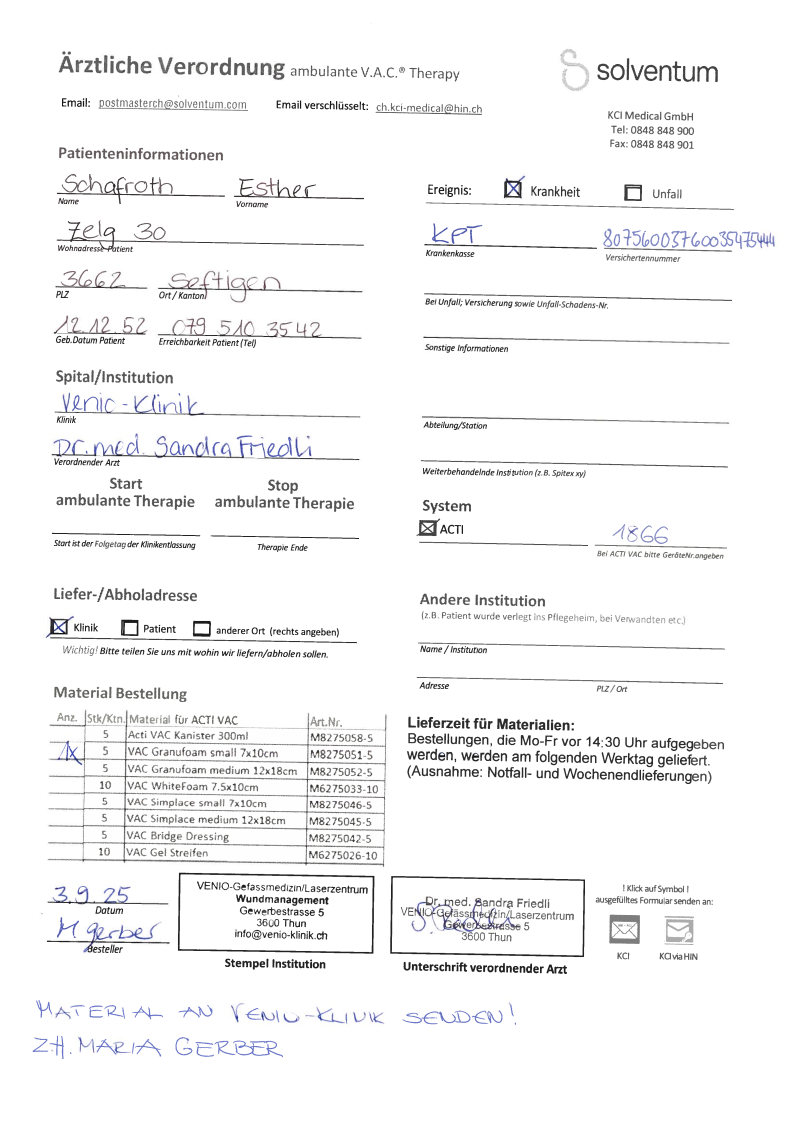 Ärztliche Verordnung ambulante V.A.C.® Therapy
solventum
Email: postmasterch@solventum.com Email verschlüsselt: ch.kci-medical@hin.ch
KCI Medical GmbH
Tel: 0848 848 900
Fax: 0848 848 901
Patienteninformationen
Schafroth Esther
Name Vorname
Zelg 30
Wohnadresse Patient
3662 Seftigen
PLZ Ort / Kanton
12.12.52 079 510 3542
Geb.Datum Patient Erreichbarkeit Patient (Tel)
Ereignis: Krankheit Unfall
KPT 80756003760035475444
Krankenkasse Versichertennummer
Bei Unfall; Versicherung sowie Unfall-Schadens-Nr.
Sonstige Informationen
Spital/Institution
Venic-Klinik
Klinik
Dr. med. Sandra Friedli
Verordnender Arzt
Abteilung/Station
Weiterbehandelnde Institution (z.B. Spitex xy)
Start Stop
ambulante Therapie ambulante Therapie
Start ist der Folgetag der Klinikentlassung Therapie Ende
System
ACTI 1866
Bei ACTI VAC bitte GeräteNr.angeben
Liefer-/Abholadresse
Klinik Patient anderer Ort (rechts angeben)
Wichtig! Bitte teilen Sie uns mit wohin wir liefern/abholen sollen.
Andere Institution
(z.B. Patient wurde verlegt ins Pflegeheim, bei Verwandten etc.)
Name / Institution
Adresse PLZ / Ort
Material Bestellung
Anz. Stk/Ktn. Material für ACTI VAC Art.Nr.
5 Acti VAC Kanister 300ml M8275058-5
1x 5 VAC Granufoam small 7x10cm M8275051-5
5 VAC Granufoam medium 12x18cm M8275052-5
10 VAC WhiteFoam 7.5x10cm M6275033-10
5 VAC Simplace small 7x10cm M8275046-5
5 VAC Simplace medium 12x18cm M8275045-5
5 VAC Bridge Dressing M8275042-5
10 VAC Gel Streifen M6275026-10
Lieferzeit für Materialien:
Bestellungen, die Mo-Fr vor 14:30 Uhr aufgegeben
werden, werden am folgenden Werktag geliefert.
(Ausnahme: Notfall- und Wochenendlieferungen)
3.9.25
Datum
M. Gerber
Besteller
VENIO-Gefässmedizin/Laserzentrum
Wundmanagement
Gewerbestrasse 5
3600 Thun
info@venio-klinik.ch
Stempel Institution
Dr. med. Sandra Friedli
VENIO-Gefässmedizin/Laserzentrum
Gewerbestrasse 5
3600 Thun
Unterschrift verordnender Arzt
! Klick auf Symbol !
ausgefülltes Formular senden an:
KCI KCI via HIN
MATERIAL AN VENIO-KLINIK SENDEN!
Z.H. MARIA GERBER